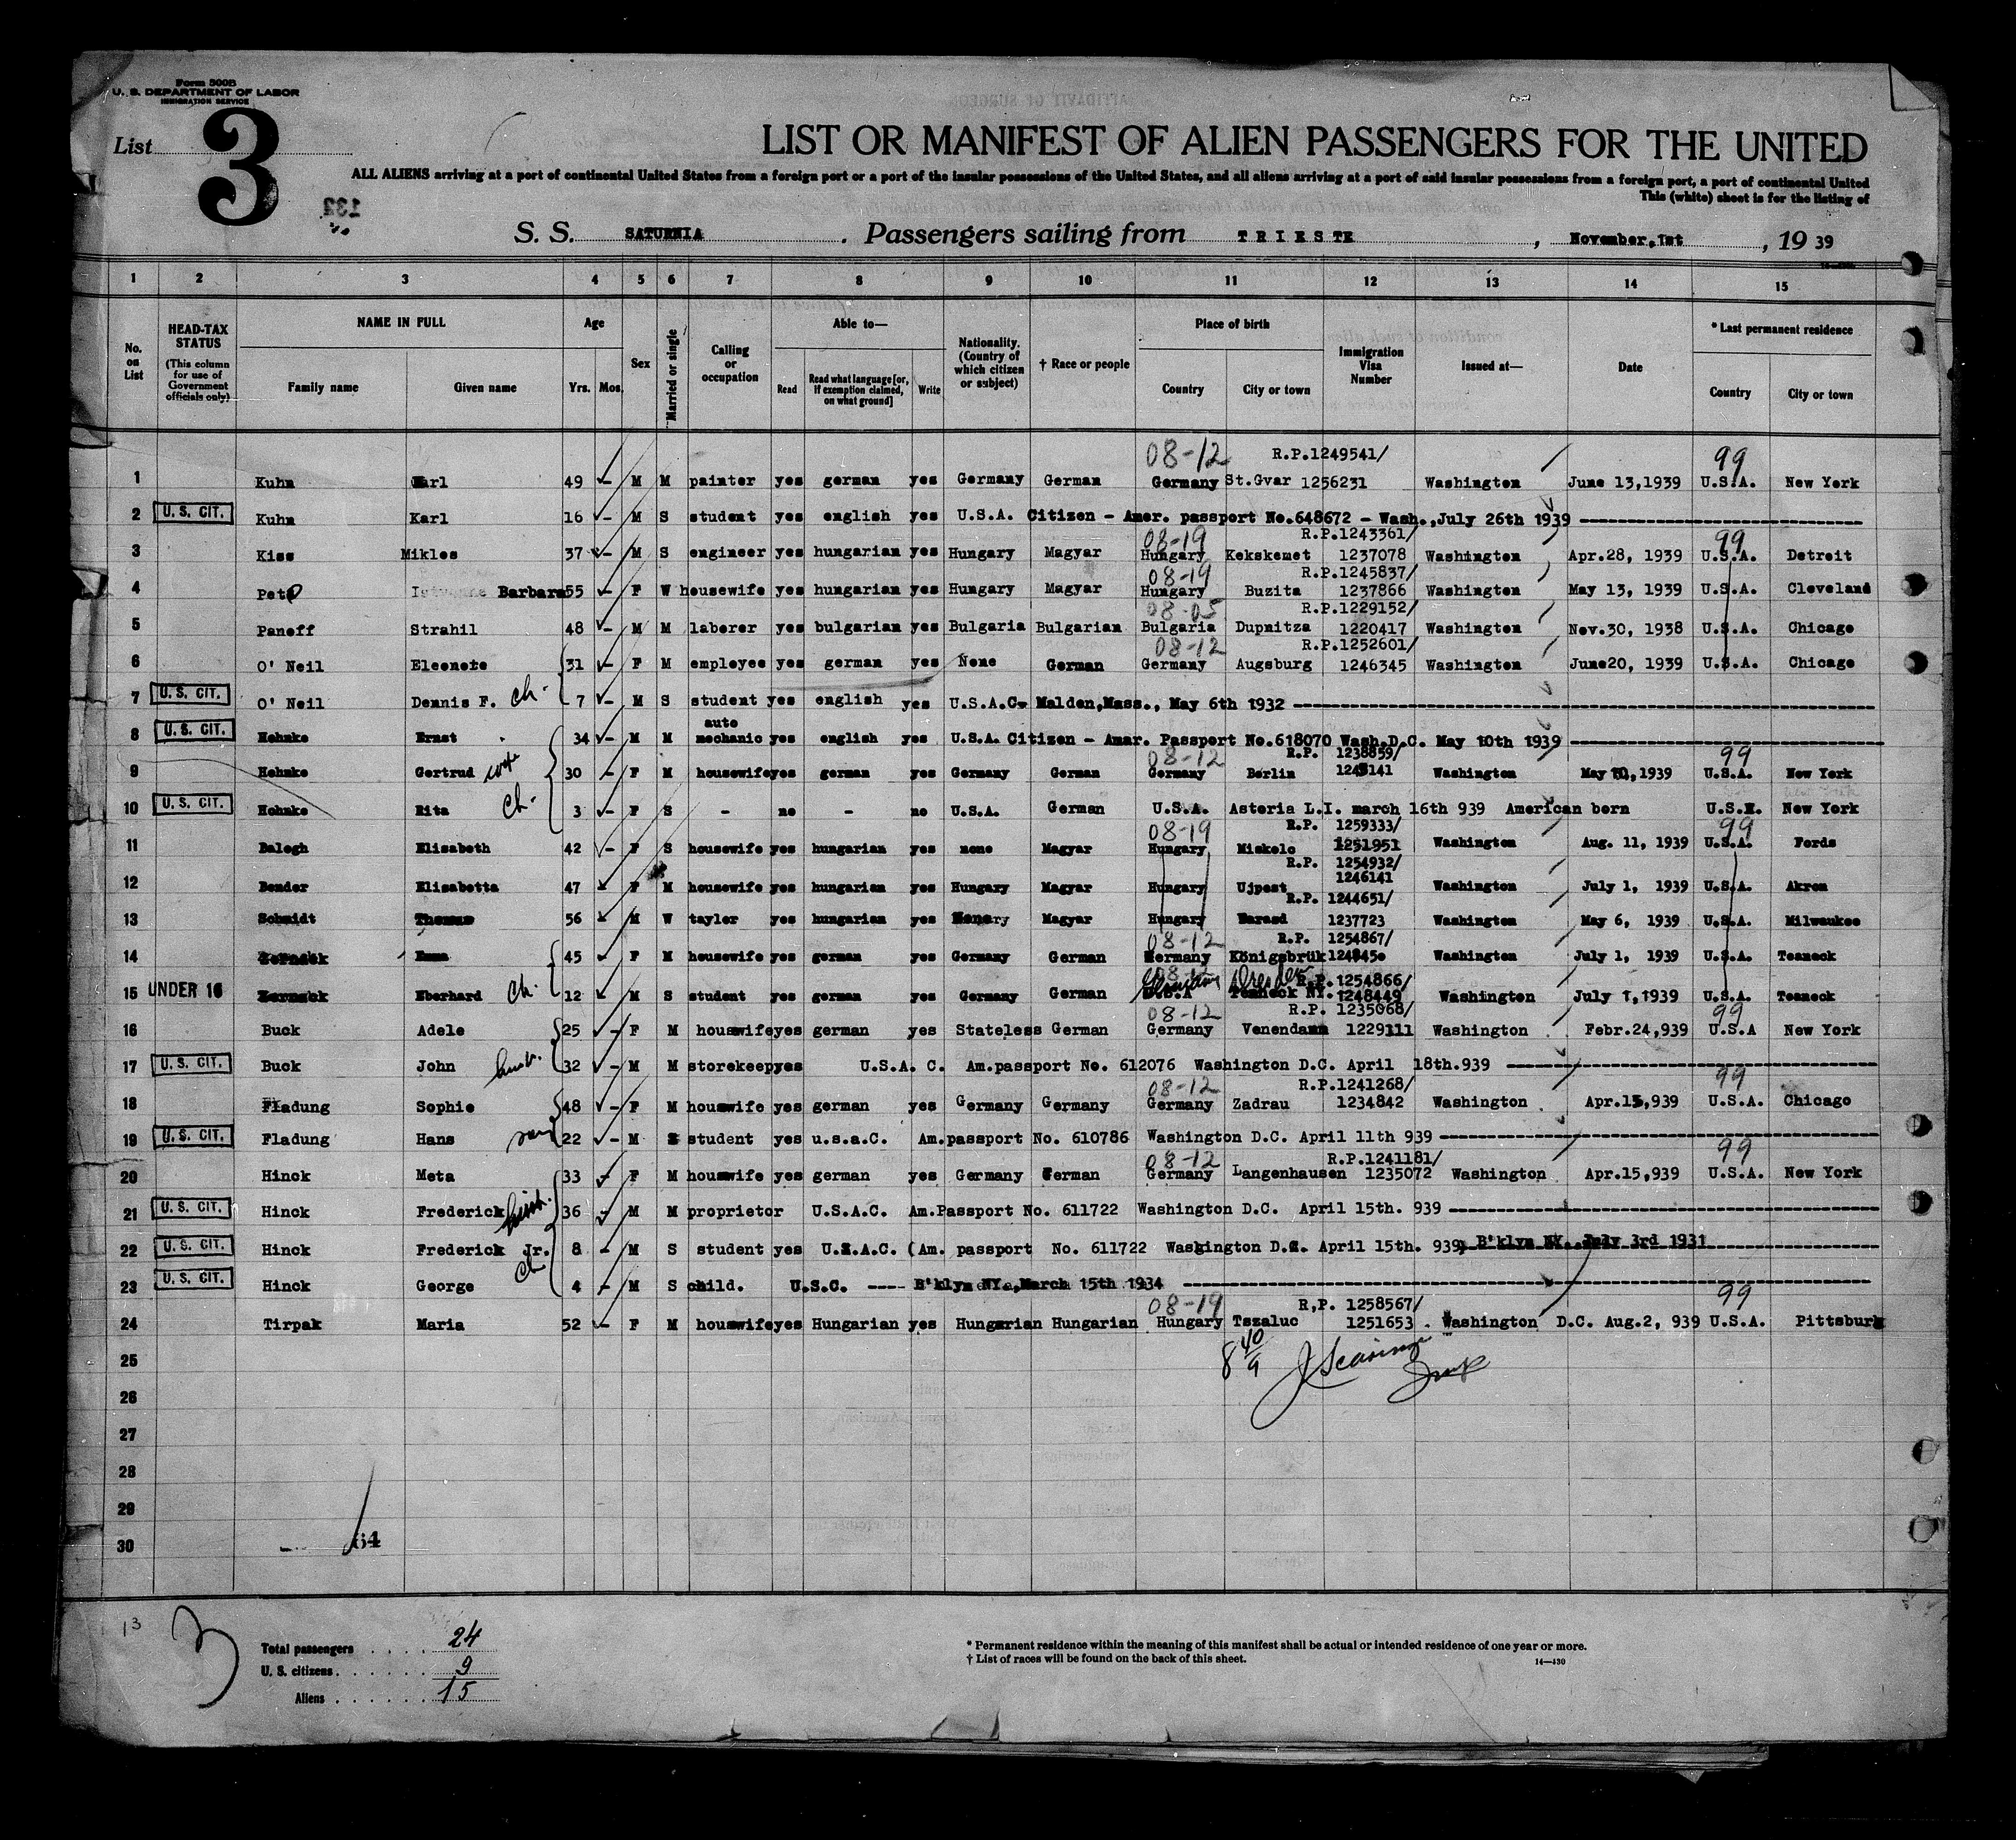 Form 500B
U. S. DEPARTMENT OF LABOR
IMMIGRATION SERVICE
List 3
LIST OR MANIFEST OF ALIEN PASSENGERS FOR THE UNITED
ALL ALIENS arriving at a port of continental United States from a foreign port or a port of the insular possessions of the United States, and all aliens arriving at a port of said insular possessions from a foreign port, a port of continental United
This (white) sheet is for the listing of
132
S. S. SATURNIA. Passengers sailing from TRIESTE, November,1st, 19 39
1 2 3 4 5 6 7 8 9 10 11 12 13 14 15
No. on List
HEAD-TAX STATUS (This column for use of Government officials only)
NAME IN FULL Family name Given name
Age Yrs. Mos.
Sex
Married or single
Calling or occupation
Able to— Read Read what language [or, if exemption claimed, on what ground] Write
Nationality. (Country of which citizen or subject)
† Race or people
Place of birth Country City or town
Immigration Visa Number
Issued at—
Date
* Last permanent residence Country City or town
08-12 R.P.1249541/ 99
1 Kuhn Karl 49 - M M painter yes german yes Germany German Germany St.Gvar 1256231 Washington June 13,1939 U.S.A. New York
2 U. S. CIT. Kuhn Karl 16 - M S student yes english yes U.S.A. Citizen - Amer. passport No.648672 - Wash.,July 26th 1939
08-19 R.P.1243361/ 99
3 Kiss Miklos 37 - M S engineer yes hungarian yes Hungary Magyar Hungary Kekskemet 1237078 Washington Apr.28, 1939 U.S.A. Detroit
08-19 R.P.1245837/
4 Peto Barbara 55 - F W housewife yes hungarian yes Hungary Magyar Hungary Buzita 1237866 Washington May 13, 1939 U.S.A. Cleveland
08-05 R.P.1229152/
5 Paneff Strahil 48 - M M laborer yes bulgarian yes Bulgaria Bulgarian Bulgaria Dupnitza 1220417 Washington Nov.30, 1938 U.S.A. Chicago
08-12 R.P.1252601/
6 O' Neil Eleonore 31 - F M employee yes german yes None German Germany Augsburg 1246345 Washington June20, 1939 U.S.A. Chicago
7 U. S. CIT. O' Neil Dennis F. ch. 7 - M S student yes english yes U.S.A.C- Malden,Mass., May 6th 1932
8 U. S. CIT. Hehnke Ernst 34 - M M auto mechanic yes english yes U.S.A. Citizen - Amar. Passport No.618070 Wash.D.C. May 10th 1939
08-12 R.P. 1238859/ 99
9 Hehnke Gertrud wife 30 - F M housewife yes german yes Germany German Germany Berlin 1243141 Washington May 10,1939 U.S.A. New York
10 U. S. CIT. Hehnke Rita ch. 3 - F S - no - no U.S.A. German U.S.A. Asteria L.I. march 16th 939 American born New York
08-19 R.P. 1259333/ 99
11 Balogh Elisabeth 42 - F S housewife yes hungarian yes none Magyar Hungary Miskolc 1251951 Washington Aug. 11, 1939 U.S.A. Fords
R.P. 1254932/
12 Bender Elisabetta 47 F M housewife yes hungarian yes Hungary Magyar Hungary Ujpest 1246141 Washington July 1, 1939 U.S.A. Akron
R.P. 1244651/
13 Schmidt Thomas 56 M W tayler yes hungarian yes Magyar Hungary 1237723 Washington May 6, 1939 U.S.A. Milwaukee
08-12 R.P. 1254867/
14 Emma 45 F M housewife yes german yes Germany German Germany Königsbrük Washington July 1, 1939 U.S.A. Teaneck
Germany Dresden R.P.1254866/
15 UNDER 16 Eberhard ch. 12 M S student yes german yes Germany German U.S.A Teaneck NY. 1248449 Washington July 1,1939 U.S.A. Teaneck
08-12 R.P. 1235068/ 99
16 Buck Adele 25 - F M housewife yes german yes Stateless German Germany Venendamm 1229111 Washington Febr.24,939 U.S.A New York
17 U. S. CIT. Buck John husb. 32 - M M storekeep yes U.S.A. C. Am.passport No. 612076 Washington D.C. April 18th.939
08-12 R.P.1241268/ 99
18 Fladung Sophie 48 - F M houswife yes german yes Germany Germany Germany Zadrau 1234842 Washington Apr.15,939 U.S.A. Chicago
19 U. S. CIT. Fladung Hans son 22 - M S student yes u.s.a.C. Am.passport No. 610786 Washington D.C. April 11th 939
08-12 R.P.1241181/ 99
20 Hinck Meta 33 F M housewife yes german yes Germany German Germany Langenhausen 1235072 Washington Apr.15,939 U.S.A. New York
21 U. S. CIT. Hinck Frederick husb. 36 - M M proprietor U.S.A.C. Am.Passport No. 611722 Washington D.C. April 15th. 939
22 U. S. CIT. Hinck Frederick Jr. 8 - M S student yes U.S.A.C. (Am. passport No. 611722 Washington D.C. April 15th. 939) B'klyn NY. July 3rd 1931
23 U. S. CIT. Hinck George ch 4 - M S child. U.S.C. ---- B'klyn NY.,March 15th 1934
08-19 R,P. 1258567/ 99
24 Tirpak Maria 52 - F M houswife yes Hungarian yes Hungarian Hungarian Hungary Tszaluc 1251653 . Washington D.C. Aug.2, 939 U.S.A. Pittsburg
25
26
27
28
29
30
64
13 3
Total passengers . . . . 24
U. S. citizens . . . . . . 9
Aliens . . . . . . 15
* Permanent residence within the meaning of this manifest shall be actual or intended residence of one year or more.
† List of races will be found on the back of this sheet.
14—430